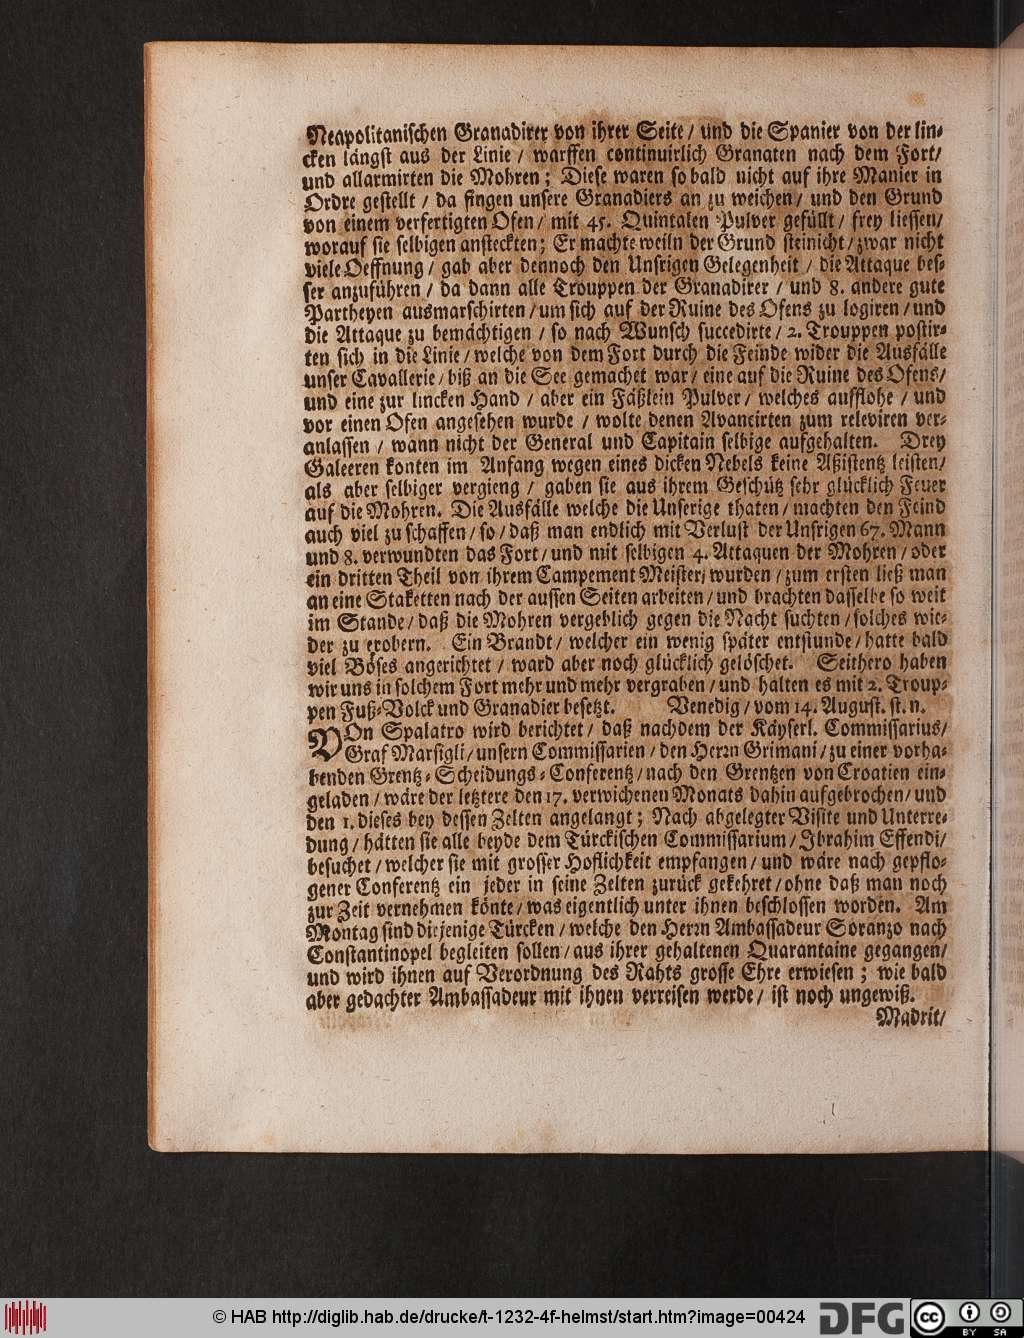 Neapolitanischen Granadirer von ihrer Seite / und die Spanier von der lin-
cken längst aus der Linie / warffen continuirlich Granaten nach dem Fort/
und allarmirten die Mohren; Diese waren so bald nicht auf ihre Manier in
Ordre gestellt / da fingen unsere Granadiers an zu weichen / und den Grund
von einem verfertigten Ofen / mit 45. Quintalen Pulver gefüllt / frey liessen/
worauf sie selbigen ansteckten; Er machte weiln der Grund steinicht / zwar nicht
viele Oeffnung / gab aber dennoch den Unsrigen Gelegenheit / die Attaque bes-
ser anzuführen / da dann alle Trouppen der Granadirer / und 8. andere gute
Partheyen ausmarschirten / um sich auf der Ruine des Ofens zu logiren / und
die Attaque zu bemächtigen / so nach Wunsch succedirte / 2. Trouppen postir-
ten sich in die Linie / welche von dem Fort durch die Feinde wider die Ausfälle
unser Cavallerie / biß an die See gemachet war / eine auf die Ruine des Ofens/
und eine zur lincken Hand / aber ein Fäßlein Pulver / welches aufflohe / und
vor einen Ofen angesehen wurde / wolte denen Avancirten zum releviren ver-
anlassen / wann nicht der General und Capitain selbige aufgehalten. Drey
Galeeren konten im Anfang wegen eines dicken Nebels keine Aßistentz leisten/
als aber selbiger vergieng / gaben sie aus ihrem Geschütz sehr glücklich Feuer
auf die Mohren. Die Ausfälle welche die Unserige thaten / machten den Feind
auch viel zu schaffen / so / daß man endlich mit Verlust der Unsrigen 67. Mann
und 8. verwundten das Fort / und mit selbigen 4. Attaquen der Mohren / oder
ein dritten Theil von ihrem Campement Meister wurden / zum ersten ließ man
an eine Staketten nach der aussen Seiten arbeiten / und brachten dasselbe so weit
im Stande / daß die Mohren vergeblich gegen die Nacht suchten / solches wie-
der zu erobern. Ein Brandt / welcher ein wenig später entstunde / hatte bald
viel Böses angerichtet / ward aber noch glücklich gelöschet. Seithero haben
wir uns in solchem Fort mehr und mehr vergraben / und halten es mit 2. Troup-
pen Fuß-Volck und Granadier besetzt. Venedig / vom 14. August. st. n.
VOn Spalatro wird berichtet / daß nachdem der Käyserl. Commissarius/
Graf Marsigli / unsern Commissarien / den Herrn Grimani / zu einer vorha-
benden Grentz-Scheidungs-Conferentz / nach den Grentzen von Croatien ein-
geladen / wäre der letztere den 17. verwichenen Monats dahin aufgebrochen / und
den 1. dieses bey dessen Zelten angelangt; Nach abgelegter Visite und Unterre-
dung / hätten sie alle beyde dem Türckischen Commissarium / Ibrahim Effendi/
besuchet / welcher sie mit grosser Hoflichkeit empfangen / und wäre nach gepflo-
gener Conferentz ein jeder in seine Zelten zurück gekehret / ohne daß man noch
zur Zeit vernehmen könte / was eigentlich unter ihnen beschlossen worden. Am
Montag sind diejenige Türcken / welche den Herrn Ambassadeur Soranzo nach
Constantinopel begleiten sollen / aus ihrer gehaltenen Quarantaine gegangen/
und wird ihnen auf Verordnung des Rahts grosse Ehre erwiesen; wie bald
aber gedachter Ambassadeur mit ihnen verreisen werde / ist noch ungewiß.
Madrit/
© HAB http://diglib.hab.de/drucke/t-1232-4f-helmst/start.htm?image=00424
DFG
cc BY SA